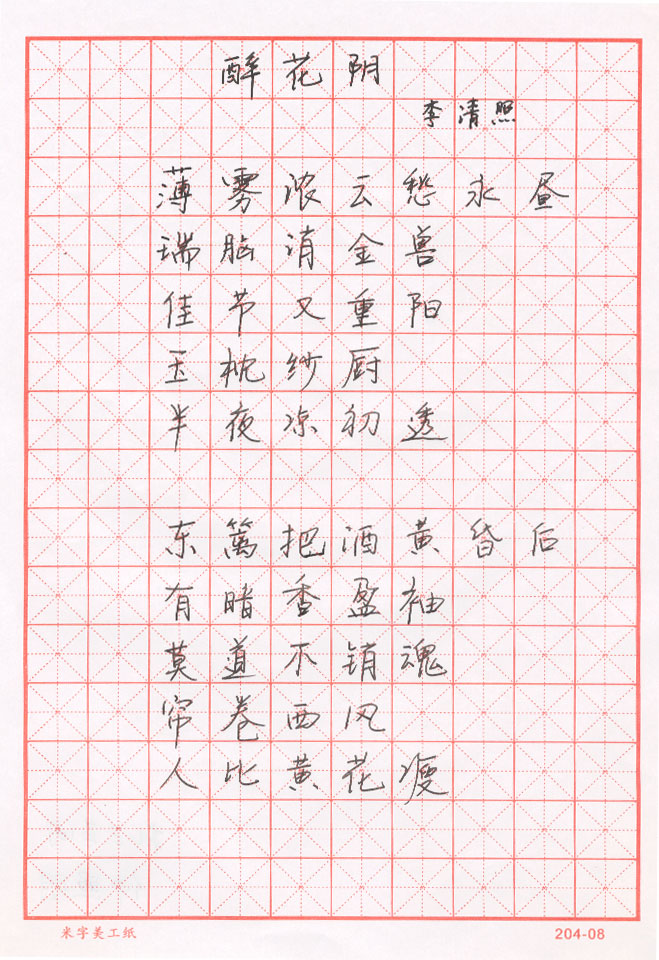 醉花阴
李清照
薄雾浓云愁永昼
瑞脑消金兽
佳节又重阳
玉枕纱厨
半夜凉初透
东篱把酒黄昏后
有暗香盈袖
莫道不销魂
帘卷西风
人比黄花瘦
米字美工纸 204-08